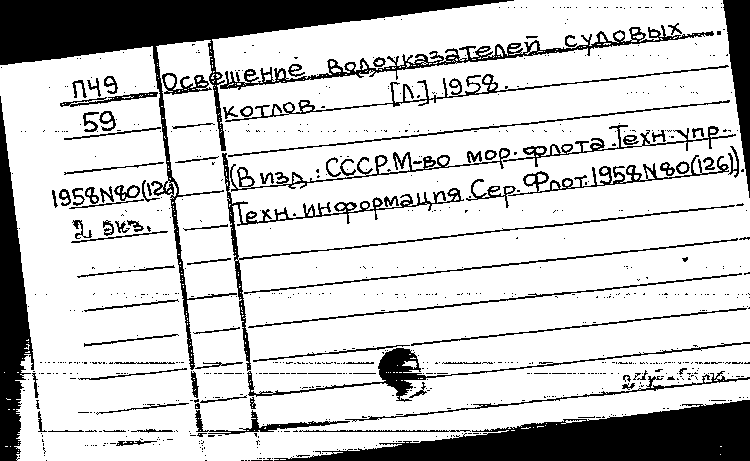 П49 Освещение водоуказателей судовых
59 котлов. [Л.], 1958.
(В изд.: СССР. М-во мор. флота. Техн. упр.
1958N80(126) Техн. информация. Сер. Флот. 1958N80(126)).
2 экз.